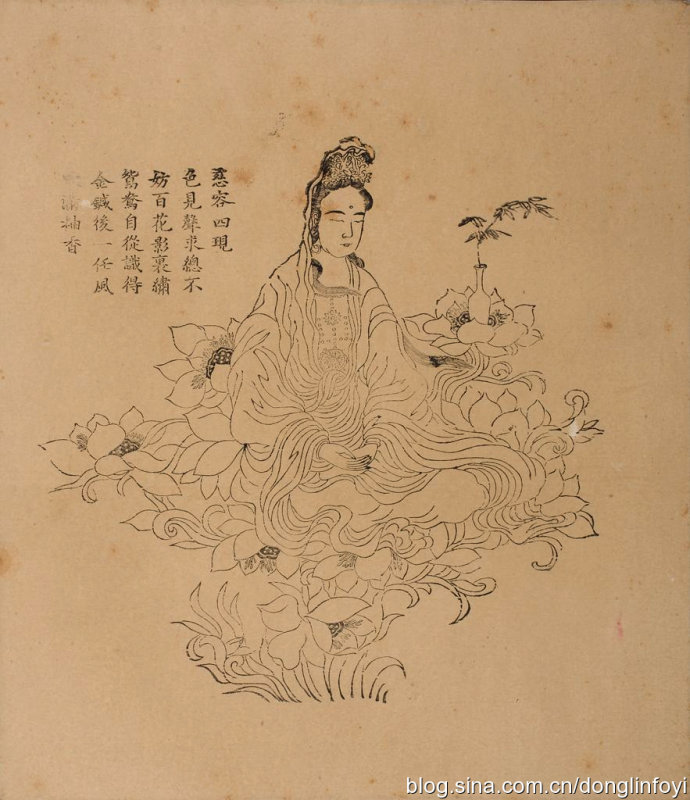 慈容四現
色見聲求總不
妨百花影裏繡
鴛鴦自從識得
金鍼後一任風
袖香
blog.sina.com.cn/donglinfoyi